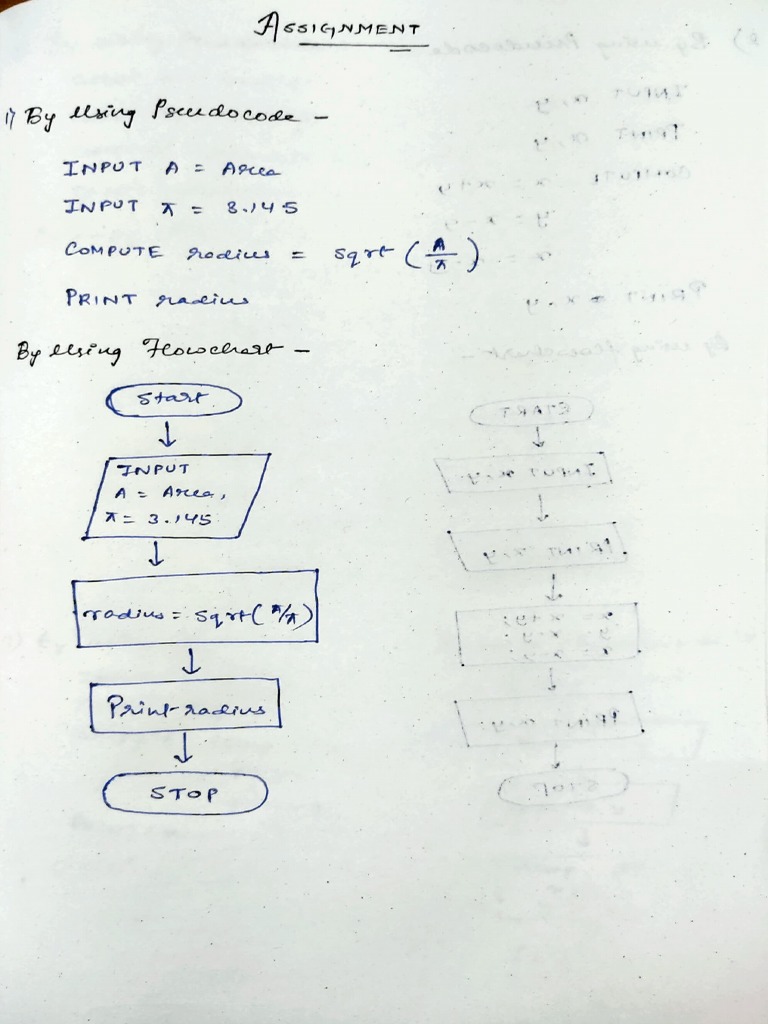 ASSIGNMENT
1) By Using Pseudocode -
INPUT A = Area
INPUT π = 3.145
COMPUTE radius = sqrt (A/π)
PRINT radius
By Using Flowchart -
Start
INPUT
A = Area,
π = 3.145
radius = sqrt(A/π)
Print radius
STOP